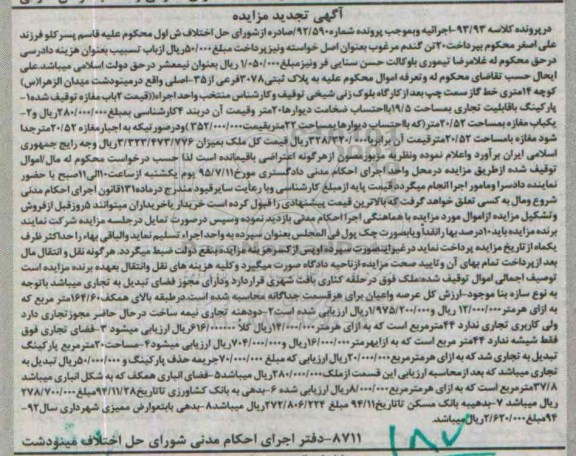 آگهی تجدید مزایده
درپرونده کلاسه ۹۳/۹۳-اجرائیه وبموجب پرونده شماره۹۲/۵۹۰صادره ازشورای حل اختلاف ش اول محکوم علیه قاسم پسرکلو فرزند
علی اصغر محکوم بپرداخت۲۰تن گندم مرغوب بعنوان اصل خواسته ونیزپرداخت مبلغ۵۰/۰۰۰ریال ازباب تسبیب بعنوان هزینه دادرسی
درحق محکوم له غلامرضا تیموری باوکالت حسن سنایی فر ونیزمبلغ۱/۰۵۰/۰۰۰ریال بعنوان نیمعشر درحق دولت اسلامی میباشد.علی
ایحال حسب تقاضای محکوم له وتعرفه اموال محکوم علیه به پلاک ثبتی۳۰۷۸فرعی از۳۵-اصلی واقع درمینودشت میدان الزهرا(س)
کوچه ۱۴متری خط گاز سمت چپ بعد از کارگاه بلوک زنی شیخی توقیف وکارشناس منتخب واحد اجراء((قیمت ۲باب مغازه توقیف شده۱-
پارکینگ باقابلیت تجاری بمساحت ۱۹/۵بااحتساب ضخامت دیوارها۲۰متر وقیمت آن دربند ۴کارشناسی بمبلغ۲۸۰/۰۰۰/۰۰۰ریال و۲-
یکباب مغازه بمساحت ۲۰/۵۲متر(که بااحتساب دیوارها بمساحت۲۲متربقیمت۳۵۲/۰۰۰/۰۰۰) ودرصورتیکه به اجبارمغازه ۲۰/۵۲مترجدا
شود مغازه بامساحت ۲۰/۵۲مترقیمت آن برابربا۳۲۸/۳۲۰/۰۰۰ریال قیمت کل ملک بمیزان ۳/۳۲۳/۴۷۳/۷۷۶ریال وجه رایج جمهوری
اسلامی ایران برآورد واعلام نموده ونظریه مزبورمصون ازهرگونه اعتراضی باقیمانده است لذا حسب درخواست محکوم له مال/اموال
توقیف شده ازطریق مزایده درمحل واحد اجرای احکام مدنی دادگستری مورخ۹۵/۷/۱۱ یوم یکشنبه ازساعت۱۰الی۱۱صبح با حضور
نماینده دادسرا ومامور اجرا انجام میگردد.قیمت پایه ازمبلغ کارشناسی وبا رعایت سایرقیود مندرج درماده۱۳۱قانون اجرای احکام مدنی
شروع ومال به کسی تعلق خواهد گرفت که بالاترین قیمت پیشنهادی را قبول کرده است خریدار یاخریداران میتوانند ۵روزقبل ازفروش
وتشکیل مزایده ازاموال مورد مزایده با هماهنگی اجرا احکام مدنی بازدید نموده وسپس درصورت تمایل درجلسه مزایده شرکت نمایند
برنده مزایده باید۱۰درصد بهارانقداً ویابصورت چک پول فی المجلس بعنوان سپرده به واحد اجراء تسلیم نماید والباقی بهاء را حداکثر ظرف
یکماه ازتاریخ مزایده پرداخت نماید درغیراینصورت سپرده اوپس ازکسرهزینه مزایده بنفع دولت ضبط میگردد. هرگونه نقل و انتقال مال
بعد ازپرداخت تمام بهای آن وتایید صحت مزایده ازناحیه دادگاه صورت میگیرد وکلیه هزینه های نقل وانتقال بعهده برنده مزایده است
توصیف اجمالی اموال توقیف شده:ملک فوق درحلقه کناری بافت شهری قراردارد ودارای مجوز فضای تبدیل به تجاری میباشد باتوجه
به نوع سازه بنا موجود-ارزش کل عرصه واعیان برای هرقسمت جداگانه محاسبه شده است.درطبقه بالای همکف۱۶۴/۶۰متر مربع که
به ازای هرمتر۱۲/۰۰۰/۰۰۰ ریال و۱/۹۷۵/۲۰۰/۰۰۰ریال ارزیابی شده است۲-دودهنه تجاری نیمه ساخت درحال حاضر مجوزتجاری دارد
ولی کاربری تجاری ندارد ۴۴مترمربع است که به ازای هرمتر۱۴/۰۰۰/۰۰۰ریال کلاً ۶۱۶/۰۰۰/۰۰۰ریال ارزیابی میشود ۳-فضای تجاری فوق
فقط شیشه ندارد ۴۴متر مربع است که به ازایهرمتر۱۶/۰۰۰/۰۰۰ریال و۷۰۴/۰۰۰/۰۰۰ریال ارزیابی میشود۴-مساحت۲۰مترمربع پارکینگ
تبدیل به تجاری شد که به ازای هرمترمربع۲۰/۰۰۰/۰۰۰ریال ارزیابی که مبلغ ۷۰/۰۰۰/۰۰۰جریمه حذف پارکینگ و۵۰/۰۰۰/۰۰۰ریال تبدیل به
تجاری میباشد که بعد ازمحاسبه ارزیابی این قسمت ازملک۲۸۰/۰۰۰/۰۰۰ریال میباشد۵-فضای انباری همکف که به شکل انباری میباشد
۳۷/۸مترمربع است که به ازای هرمترمربع۸/۰۰۰/۰۰۰ریال ارزیابی شده ۶-بدهی به بانک کشاورزی تاتاریخ۹۴/۱۱/۲۸مبلغ۲۷۸/۷۰۰/۰۰۰
ریال میباشد ۷-بدهیبه بانک مسکن تاتاریخ۹۴/۱۱ مبلغ ۲۷۲/۸۰۶/۲۲۴ریال میباشد۸-بدهی بابتعوارض ممیزی شهرداری سال۹۲-
۹۴مبلغ۲/۶۲۰/۰۰۰ریال میباشد.
۸۷۱۱-دفتر اجرای احکام مدنی شورای حل اختلاف مینودشت
۱۸۷